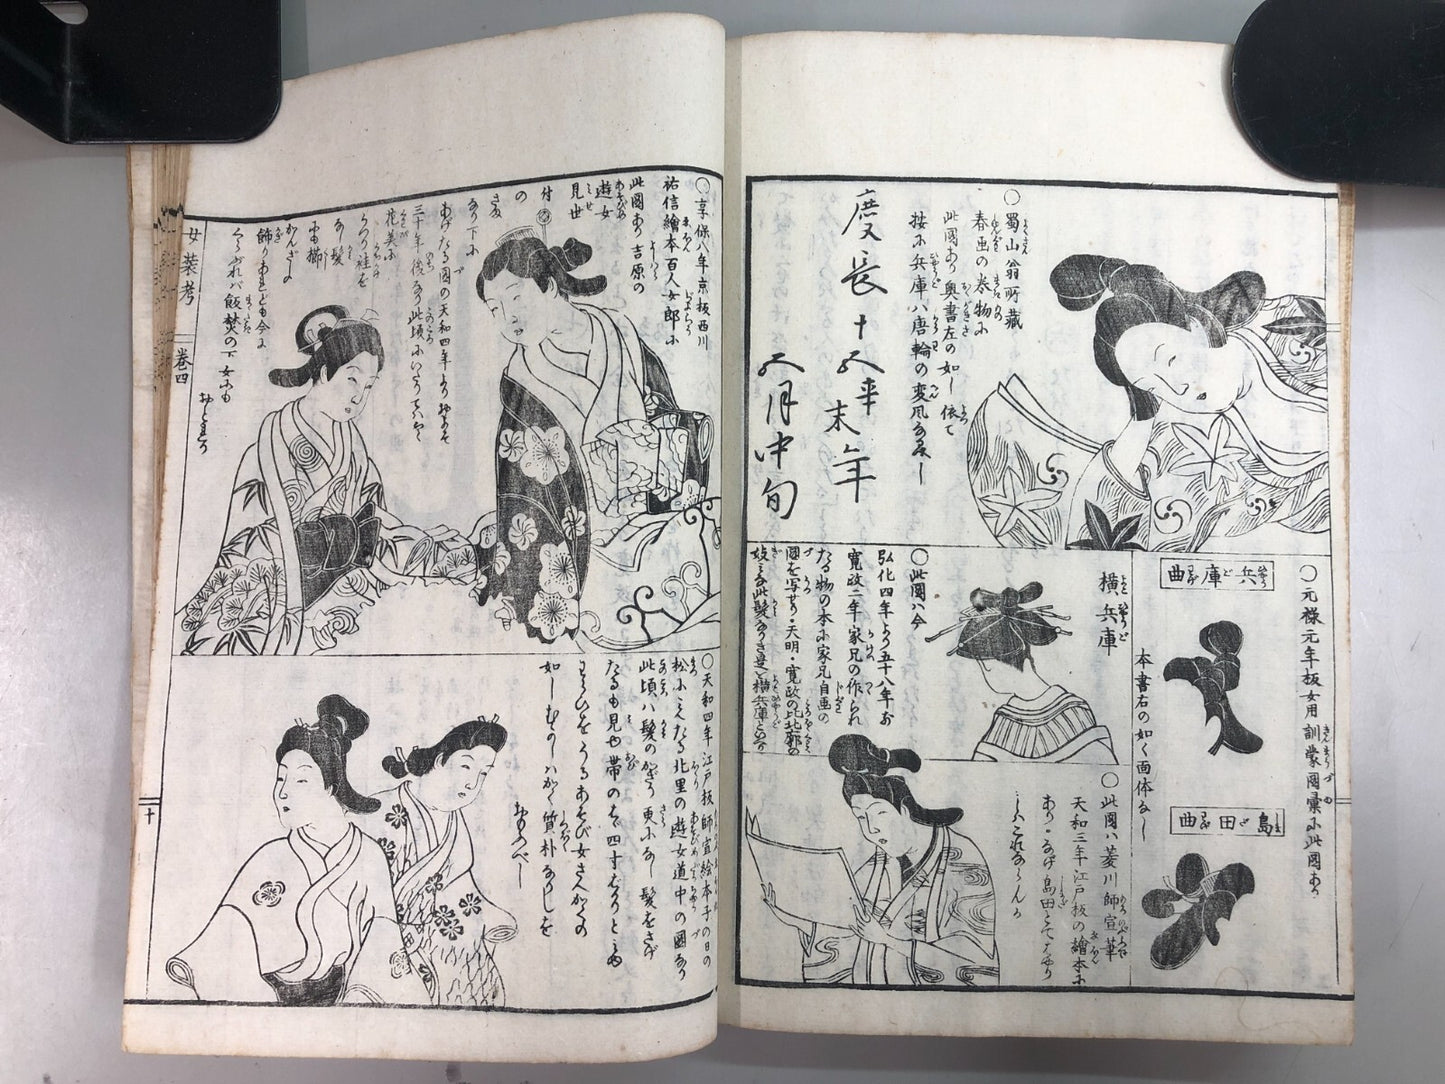 ○蜀山翁所蔵
春画の巻物に
此圖あり奥書左の如し依て
按に兵庫ハ唐輪の変風なるべし
慶長十五年末年
五月中旬
○元禄元年板女用訓蒙圖彙に此圖あり
兵庫曲
島田曲
本書右の如く面体なし
横兵庫
○此圖ハ今
弘化四年より五十八年前
寛政二年家兄の作られ
たる物の本に家兄自画の
圖を写せり天明・寛政の比北廓の
妓ミな此髪なりき是を横兵庫といへり
○此圖ハ菱川師宣筆
天和三年江戸板の繪本に
あり・なげ島田とてはやり
しこれならんか
○享保八年京板西川
祐信繪本百人女郎に
此圖あり吉原の
遊女
見世
付
の
さま
なり下に
あげたる圖の天和四年よりおよそ
三十年後なり此頃にいたりてハはや
花美に
うつり袿を
き髪
に櫛
かんざしの
飾りあれども今に
くらぶれバ飯焚の下女にも
おとれり
○天和四年江戸板師宣絵本子の日の
松に見えたる北里の遊女道中の圖なり
此頃ハ髪のかざり更になし髪をさげ
たるも見ゆ帯の
如しむかしハかく質朴なりしを
おもふべし
女装考
巻四
十